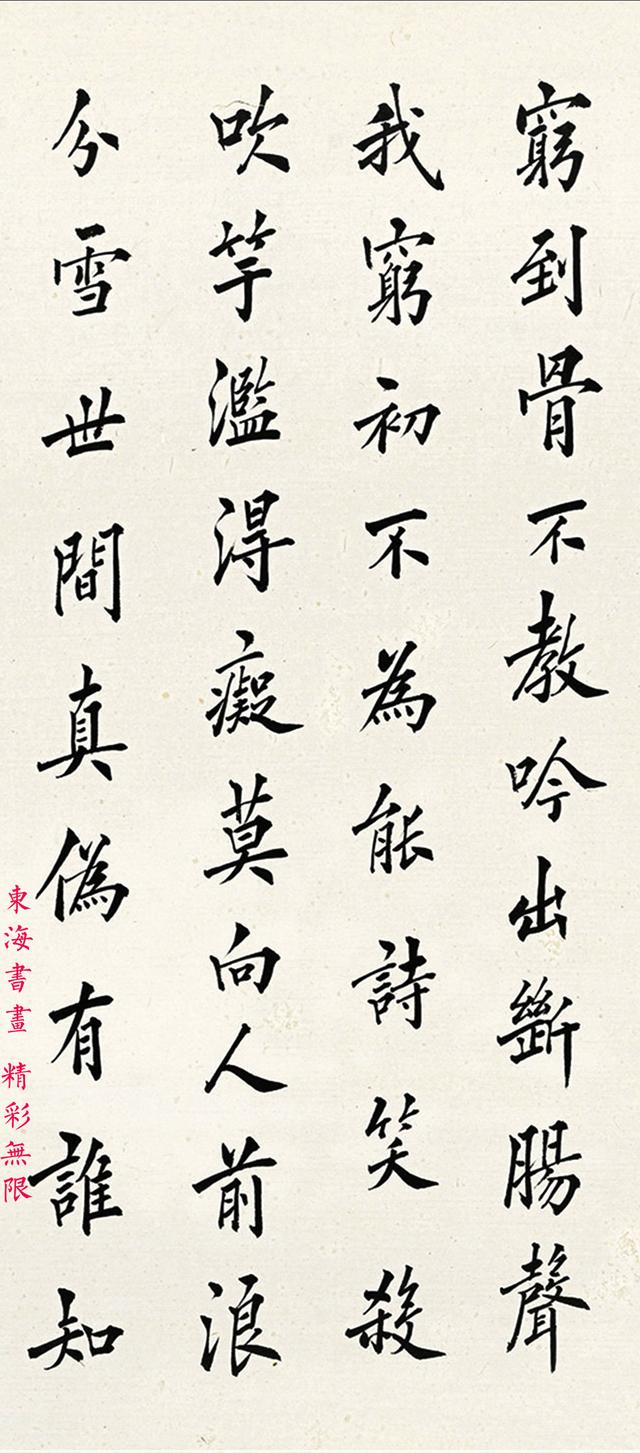 窮到骨不教吟出斷腸聲
我窮初不為能詩笑殺
吹竽濫得癡莫向人前浪
分雪世間真偽有誰知
東海書畫 精彩無限